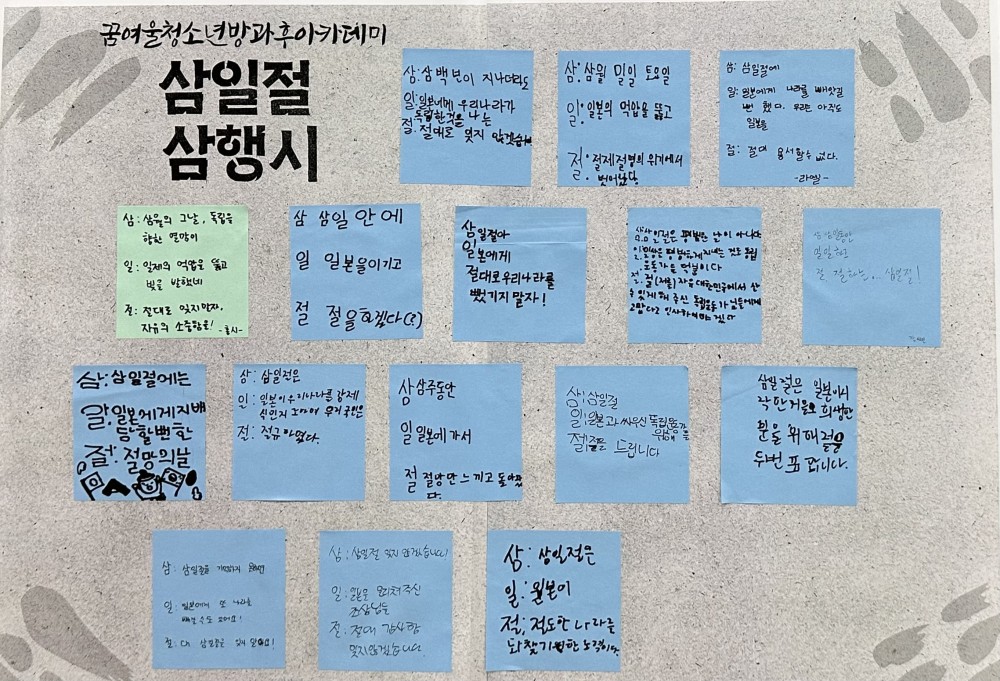 꿈여울청소년방과후아카데미
삼일절
삼행시
삼: 삼백년이 지나더라도
일: 일본에게 우리나라가
독립한것을 나는
절: 절대로 잊지 않겠습니
삼: 삼월 일일 토요일
일: 일본의 억압을 뚫고
절: 절체절명의 위기에서
벗어났당
삼: 삼일절에
일: 일본에게 나라를 빼앗길
뻔 했다. 우리는 아직도
일본을
절: 절대 용서할수 없다.
-라엘-
삼: 삼월의 그날, 독립을
향한 열망이
일: 일제의 억압을 뚫고
빛을 발했네
절: 절대로 잊지말자,
자유의 소중함을!
삼 삼일 안에
일 일본을이기고
절 절을하겠다(?)
삼일절아
일본에게
절대로우리나라를
뺐기지 말자!
삼:삼일절은 평범한 날이 아니다
일:일상을 평범하게 지내는 것도 독립
운동가 덕분이다
절: 절(저를) 자유 대한민국에서 살
수 있게 해 주신 독립운동가님들에게
고맙다고 인사하여야겠다
삼 삼일동안
절 절하는... 삼일절!
삼: 삼일절에는
일: 일본에게지배
당할뻔한
절: 절망의날
삼: 삼일절은
일: 일본이우리나라를 강제
절: 절규하였다.
삼 삼주동안
일 일본에 가서
절 절망만 느끼고 돌아왔
다
삼: 삼일절
일: 일본과 싸우신 독립운동가들
위해
절: 절을 드립니다
삼일절은 일본에서
희생한
분을 위해 절을
두번 표합니다.
삼: 삼일절을 기억하지 않으면
일: 일본에게 또 나라를
뺏길 수도 있어요!
절: 대 삼일절을 잊지 말아요!
삼: 삼일절 잊지 않겠습니다
일: 일본을 물리쳐주신
조상님들
절: 절대 감사함
잊지않겠습니다
삼: 삼일절은
일: 일본이
절: 절도한 나라를
되찾기위한 노력이다.